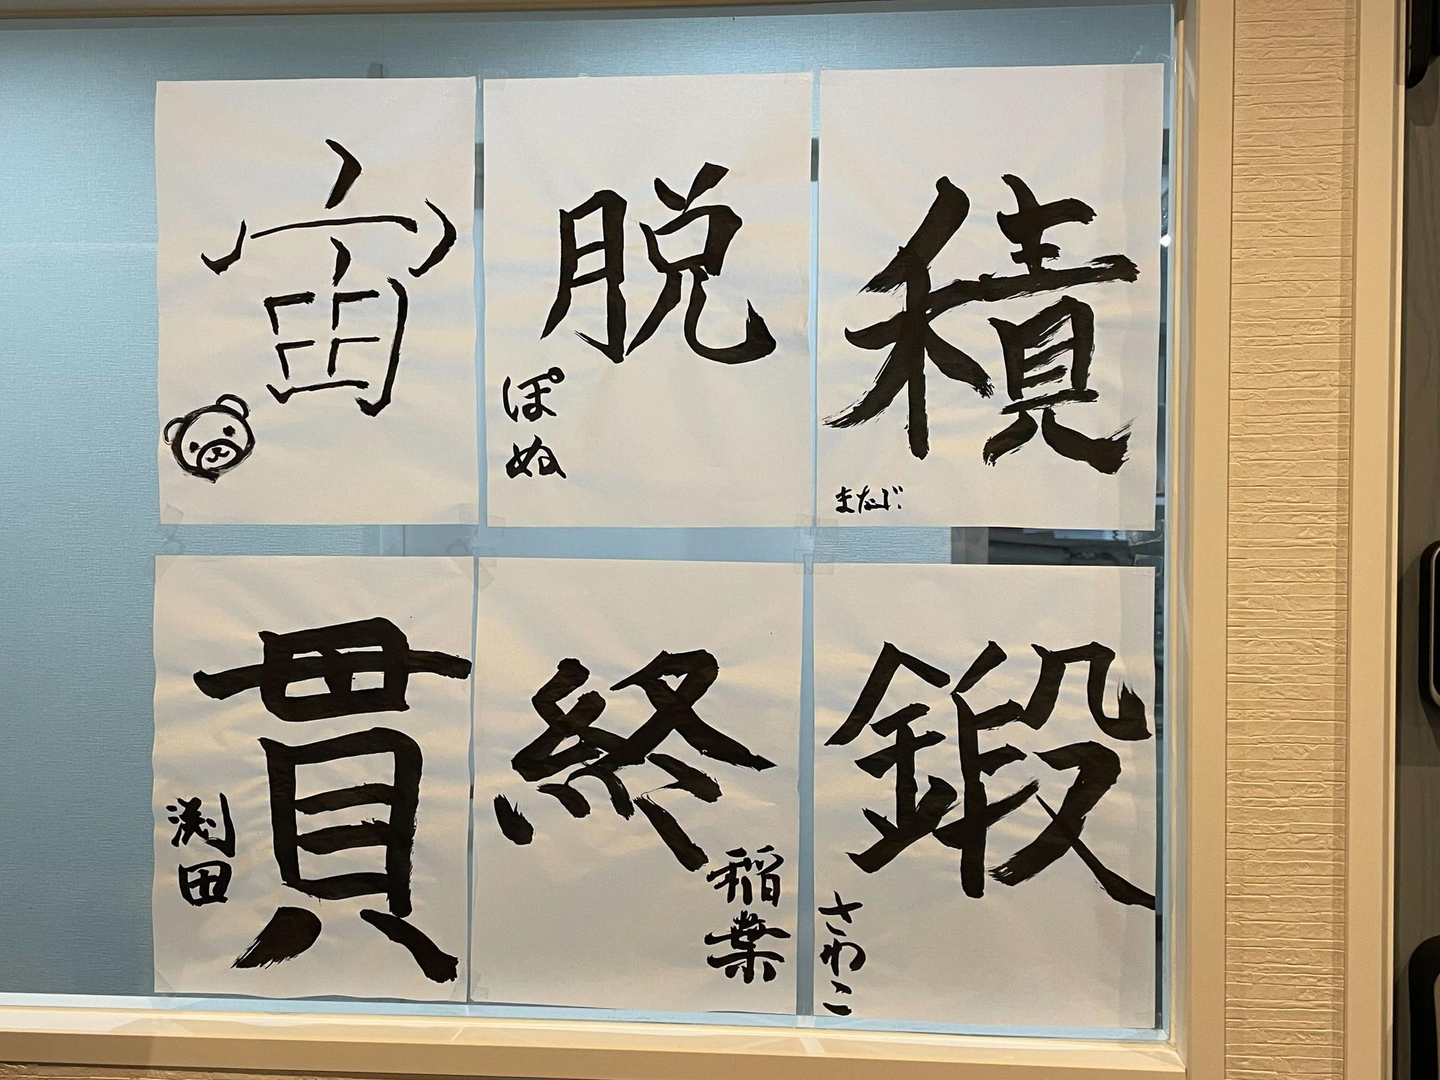 宙
脱
ぽぬ
積
まなじ
貫
渕田
終
稲葉
鍛
さわこ